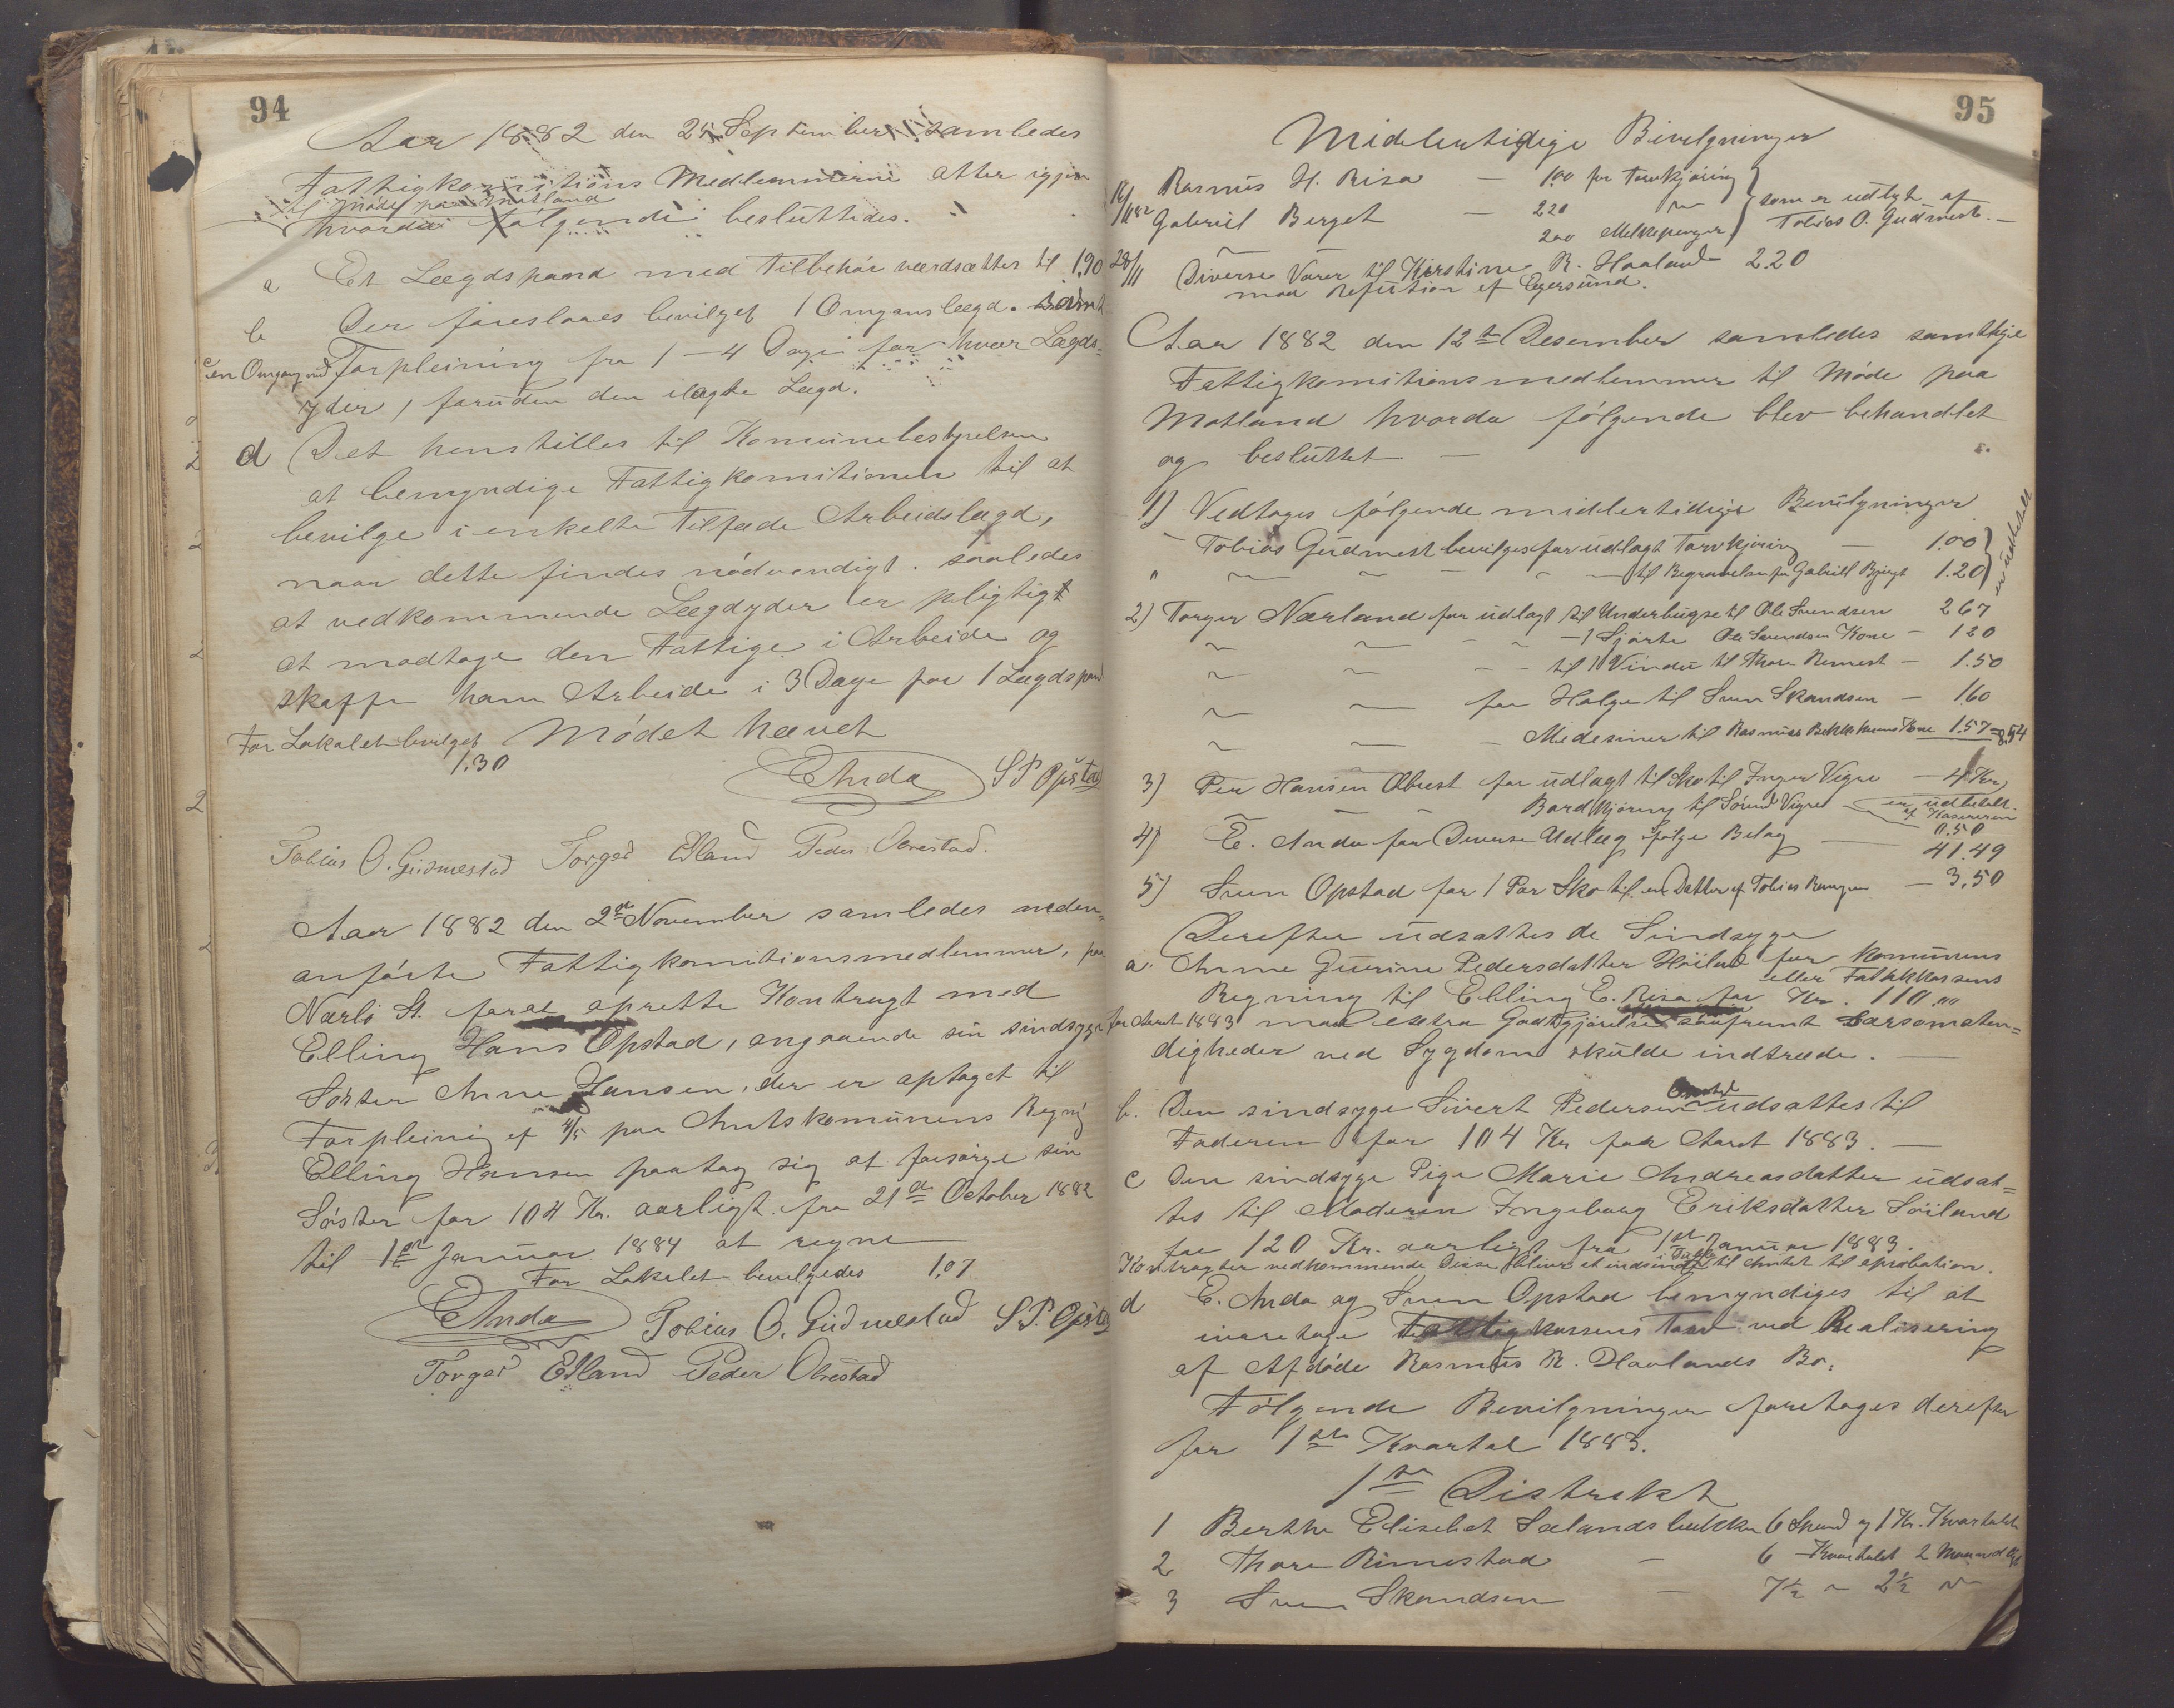 94
Aar 1882 den 25 September samledes
Fattigkomitions Medlemmerne atter igjen
til Møde paa Motland
hvorda følgende besluttedes.
a Et Lægdspand med Tilbehør værdsættes til 1,90
b Der foreslaaes bevilget 1 Omganslægd. samt
c en Omgang med Forpleining fra 1-4 Dage for hver Lægds-
yder, foruden den ilagte Lægd.
d Det henstilles til Komunebestyrelsen
at bemyndige Fattigkomitionen til at
bevilge i enkelte Tilfæde Arbeidslægd,
naar dette findes nødvendigt. saaledes
at vedkommende Lægdyder er pligtigt
at modtage den Fattige i Arbeide og
skaffe ham Arbeide i 3 Dage for 1 Lægdspand
For Lokalet bevilget Mødet hævet
1,30
E Anda S P Opstad
Tobias O. Gudmestad Torger Edland Peder Obrestad.
Aar 1882 den 2den November samledes neden-
anførte Fattigkomitionsmedlemmer, paa
Nærbø St. for at oprette Kontragt med
Elling Hans Opstad, angaaende sin sindsyge
Søster Anne Hansen, der er optaget til
Forpleinig af 4/5 paa Amtskomunens Regnig
Elling Hansen paatog sig at forsørge sin
Søster for 104 Kr. aarligt fra 21de October 1882
til 1ste Januar 1884 at regne
For Lokalet bevilgedes 1,07
E Anda Tobias O. Gudmestad S P. Opstad
Torger Edland Peder Obrestad
95
Midlertidige Bivelgninger
16/11 82 Rasmus H. Risa — 1.00 for Torvkjøring
Gabriel Berget — 220 som er udlagt af
200 Melkepenger Tobias O. Gudmest. —
28/11 Diverse Varer til Kirstine R. Haaland 2.20
mod Refution af Egersund.
Aar 1882 den 12te Desember samledes samtlige
Fattigkomitionsmedlemmer til Møde paa
Motland hvorda følgende blev behandlet
og besluttet —
1) Vedtages følgende midlertidige Bevilgninger
Tobias Gudmest bevilges for udlagt Torvkjøring — 1.00
" til Begravelse for Gabriel Bjerget 1.20
er udbetalt
2) Torger Nærland for udlagt til Underbugse til Ole Svendsen 267
— 1 Sjørte Ole Svendsen Kone — 120
til 1 Vindu til Thore Remest — 1.50
for Halge til Sven Skandsen — 160
— Medesiner til Rasmus Bekkheiens Kone 1.57 = 8,54
3) Per Hansen Obrest for udlagt til Sko til Inger Vigre — 4 Kr,
Bordkjøring til Sørend Vigre er udbetalt
af Kasereren
0.50
4) E. Anda for Diverse Udlæg ifølge Belag — 41.49
5) Sven Opstad for 1 Par Sko til en Datter af Tobias — 3,50
Derefter udsattes de Sindsyge
a. Anne Gurine Pedersdatter Høiland for Komunens
eller Fattikkassens
Regning til Elling E. Risa for Kr. 110,00
for Aaret 1883 mod extra Godtgjørelse saafremt Sarsomsten-
digheder ved Sygdom skulde indtræde.
b. Den sindsyge Sivert Pedersen Opstad udsattes til
Faderen for 104 Kr for Aaret 1883. —
c Den sindsyge Pige Marie Andreasdatter udsat-
tes til Moderen Ingeborg Eriksdatter Søiland
for 120 Kr. aarligt fra 1ste Januar 1883.
Kontragter vedkommende Disse bliver at indsende til Amtet til aprobation.
d E. Anda og Sven Opstad bemyndiges til at
ivaretage Fattigkassens Tarv ved Realisering
af Afdøde Rasmus R. Haalands Bo.
Følgende Bevilgninger foretages derefter
for 1ste Kvartal 1883.
1ste Distrekt
1 Berthe Elisebet Sælandsbakken 6 Spand og 1 Kr. Kvartalet
2 Thore Rimestad — 6 Kvartalet 2 Maaned
3 Sven Skandsen — 7½ 2½